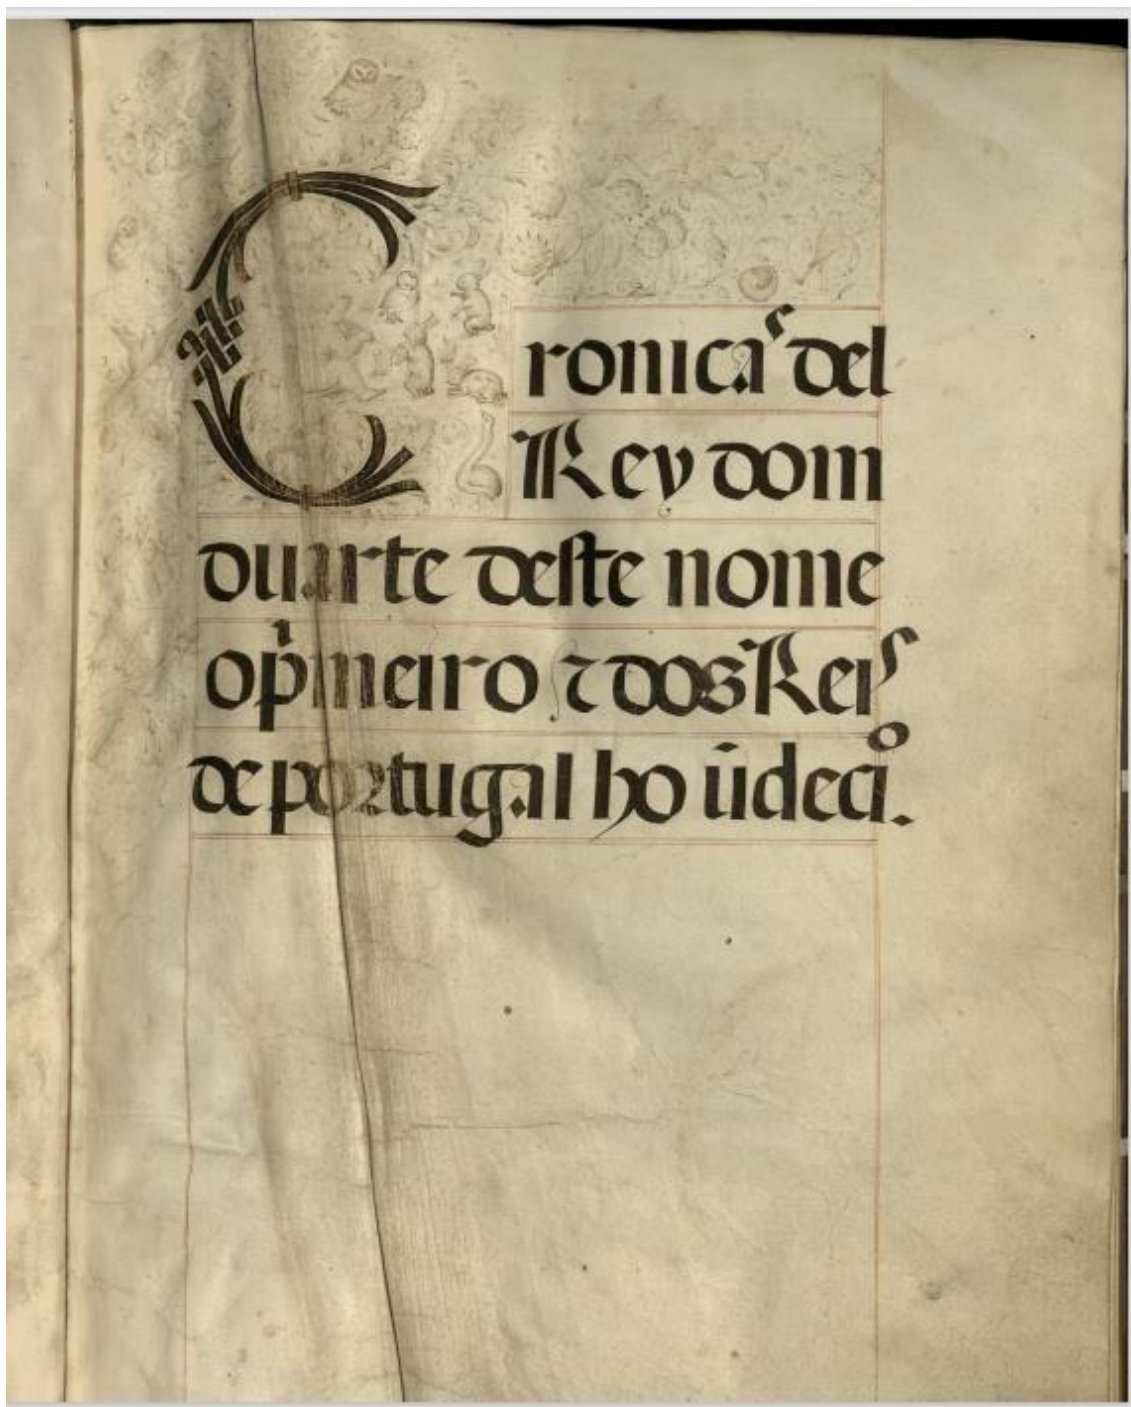 Cronicas del
Rey dom
duarte deste nome
o pimeiro ⁊ dos Reis
de portugal ho ūdecio.